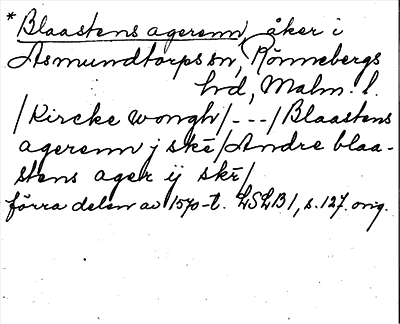 *Blaastens agerenn, åker i
Asmundtorps sn, Rönnebergs
hd, Malm. l.
/Kircke wongh/---/Blaastens
agerenn j skē/Andre blaa-
stens ager ij skē/
förra delen av 1570-t. LSLB1, s. 127. orig.